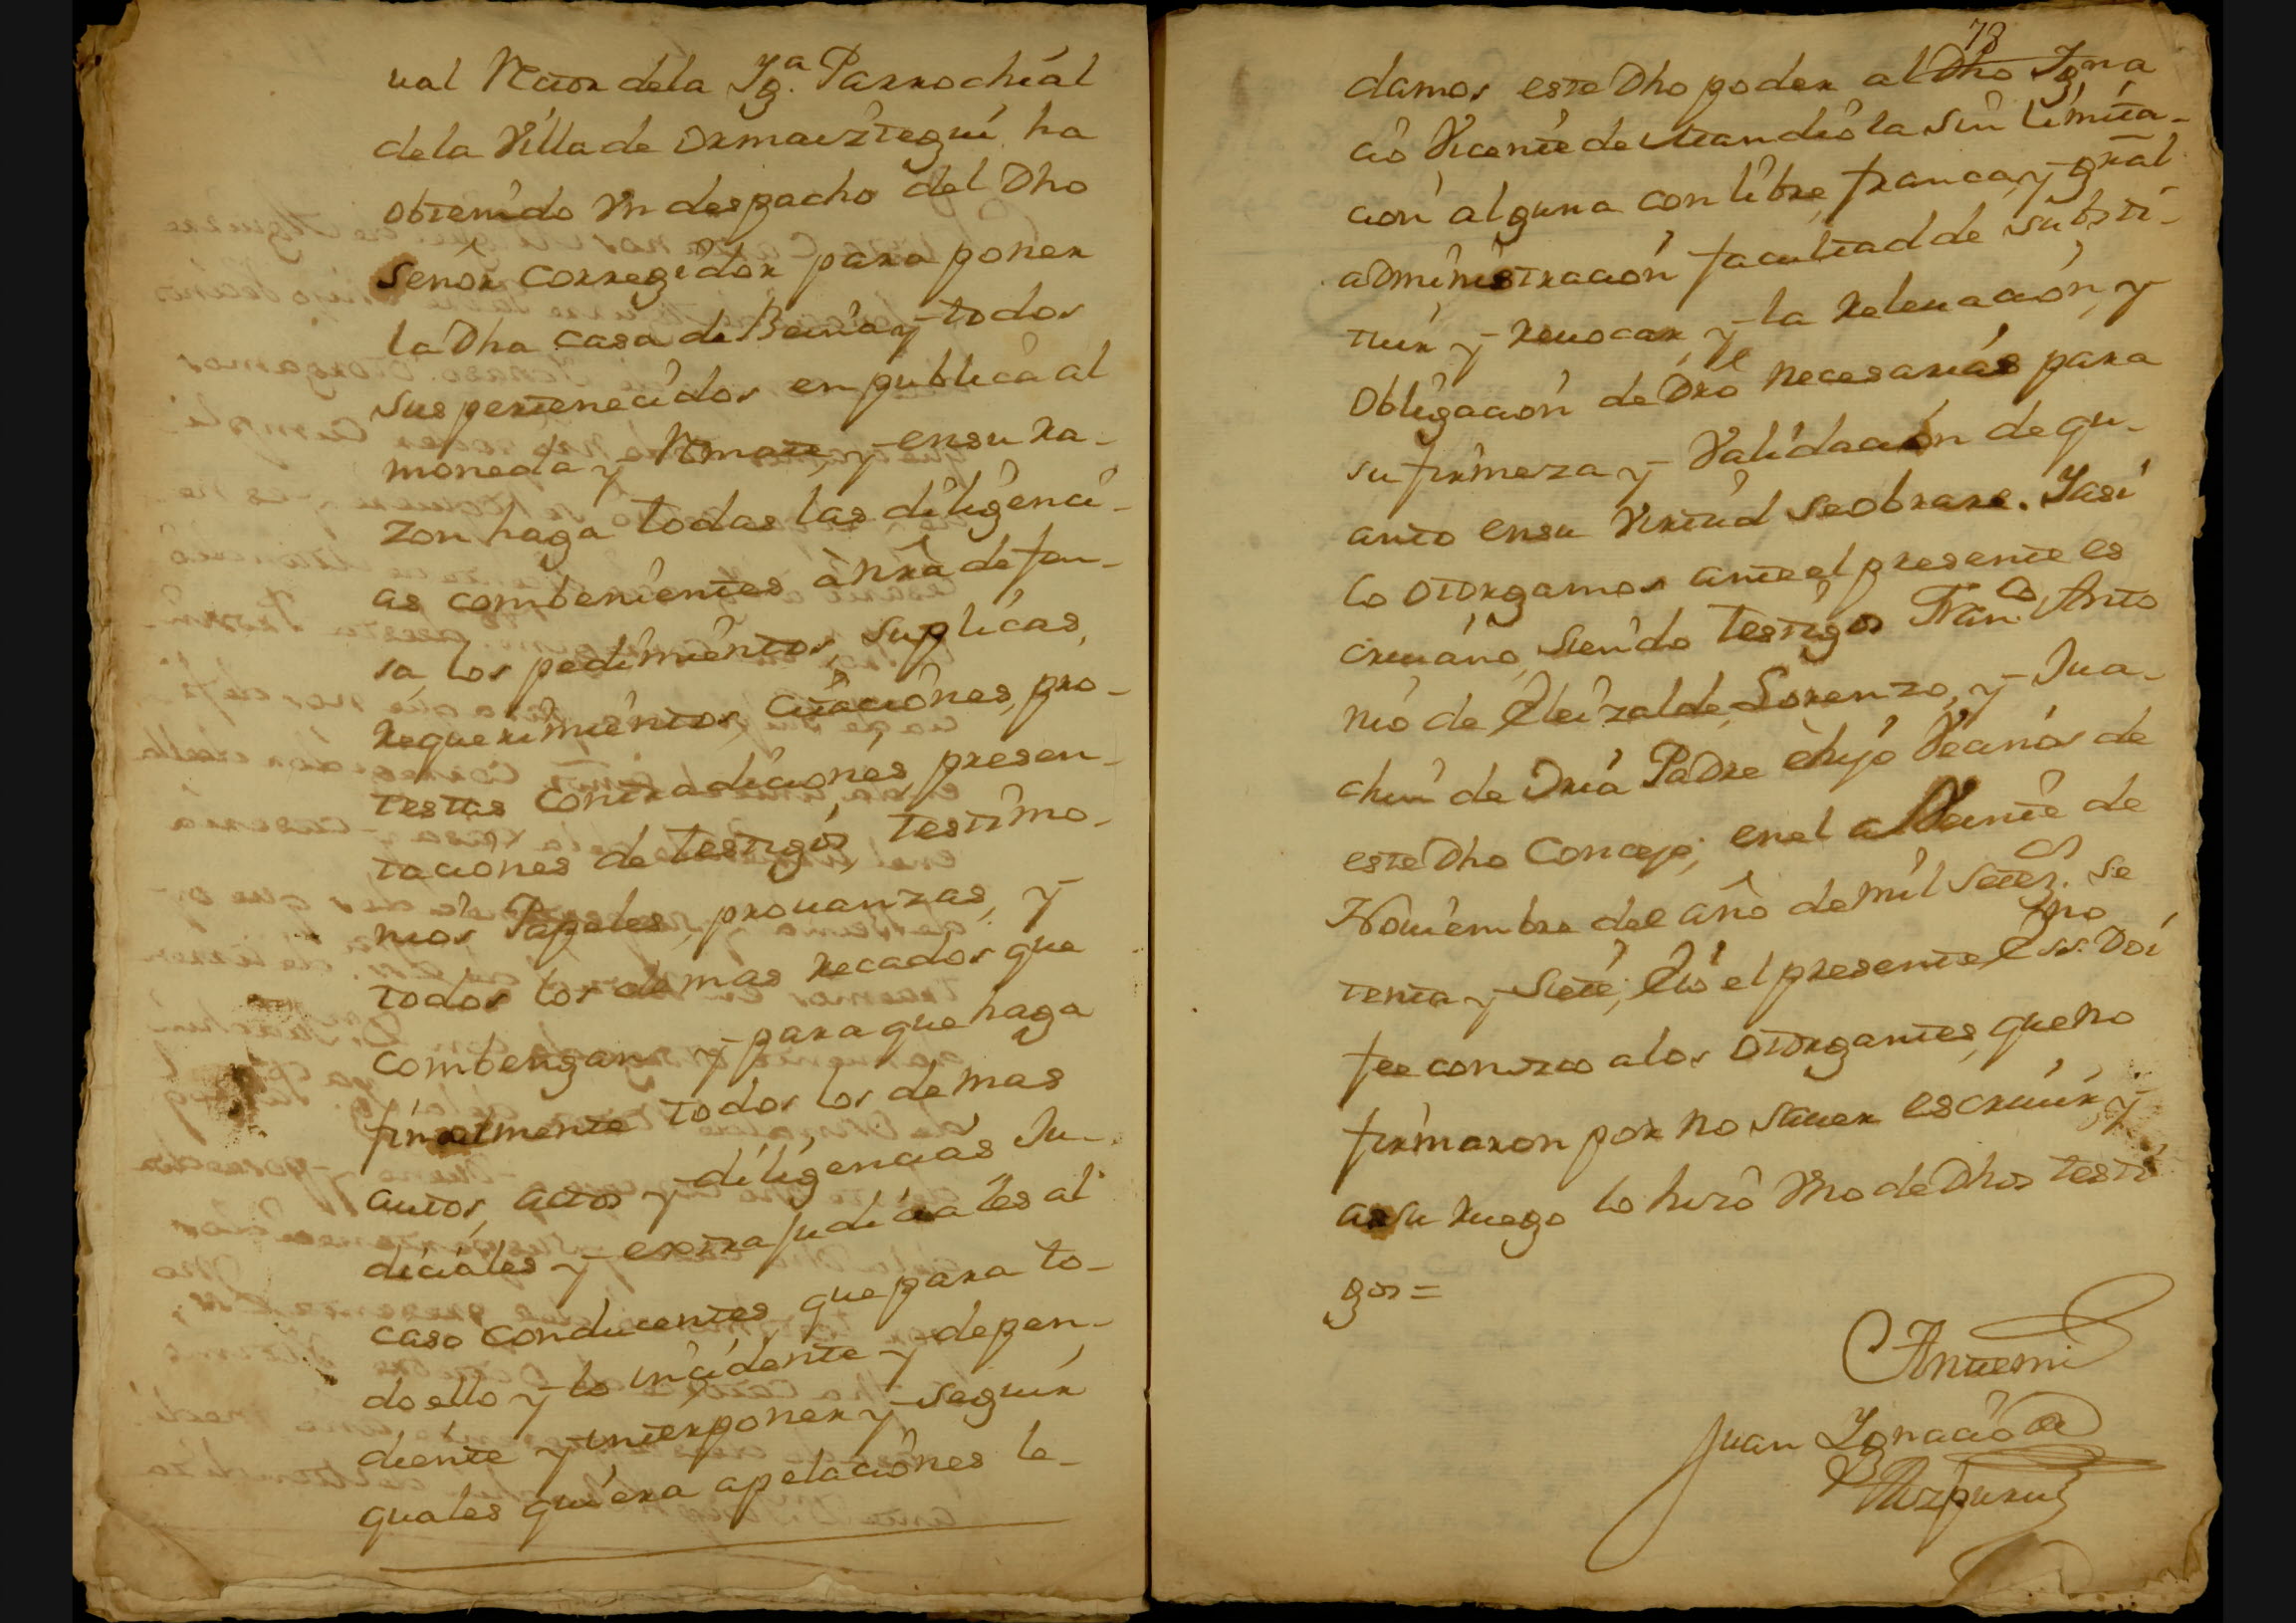 ual Rector dela Yg.ª Parrochial
dela Villa de Ormaiztegui ha
obtenido Vn despacho del Dho
Señor Corregidor para poner
la Dha casa de Beiria y todos
sus pertenecidos en publica al
moneda y Remate, y ensu ra-
zon haga todas las diligenci-
as combenientes à nrâ defen-
sa, los pedimientos, suplicas,
requerimientos, citaciones, pro-
testas contradiciones, presen-
taciones de testigos, testimo-
nios Papeles, prouanzas, y
todos los demas recados que
combengan y para que haga
finalmente todos los demas
autos, actos y diligencias Ju-
diciales y extrajudiciales al
caso conducentes, que para to-
do ello y lo incidente y depen-
diente y interponer y seguir
quales quiera apelaciones le
78
damos este Dho poder al Dho Igna
cio Vicente de Mandiola sin limita-
cion alguna con libre, franca, y grãl
administracion facultad de substi-
tuir y reuocar y la releuacion, y
obligacion de Dro necesarias para
su firmeza y Validacion de qu-
anto ensu Virtud seobrare. Yasi
lo otorgamos anteel presente es
criuano, siendo testigos Fran.co Anto
nio de Eleizalde, Lorenzo, y Jua-
chin de Oria Padre èhijo Vecinos de
este Dho Concejo; enel a Veinte de
Nouiembre del año de mil Setez.os se
tenta y Siete; Elo el presente Ess.no Doi
fee conozco alos otorgantes, queno
firmaron por no sauer escriuir, y
asu ruego lo hizo Vno de Dhos testi
gos =
Antemi
Juan Ygnacio de